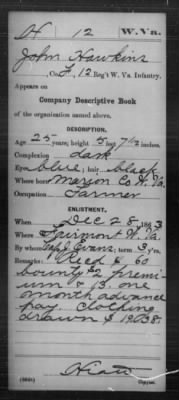 H 12 W. Va.
John Hawkins
, Co. F, 12 Reg't W. Va. Infantry.
Appears on
Company Descriptive Book
of the organization named above.
DESCRIPTION.
Age 25 years; height 5 feet 7 1/2 inches.
Complexion dark
Eyes blue; hair black
Where born Marion Co W. Va.
Occupation Farmer
ENLISTMENT.
When Dec 28, 1863
Where Fairmont W. Va.
By whom Capt J. Evans; term 3 y'rs.
Remarks: Rec'd $ 60
bounty $2 premi
um $13. one
month advance
pay. Clothing
drawn $ 19038.
Copyist.